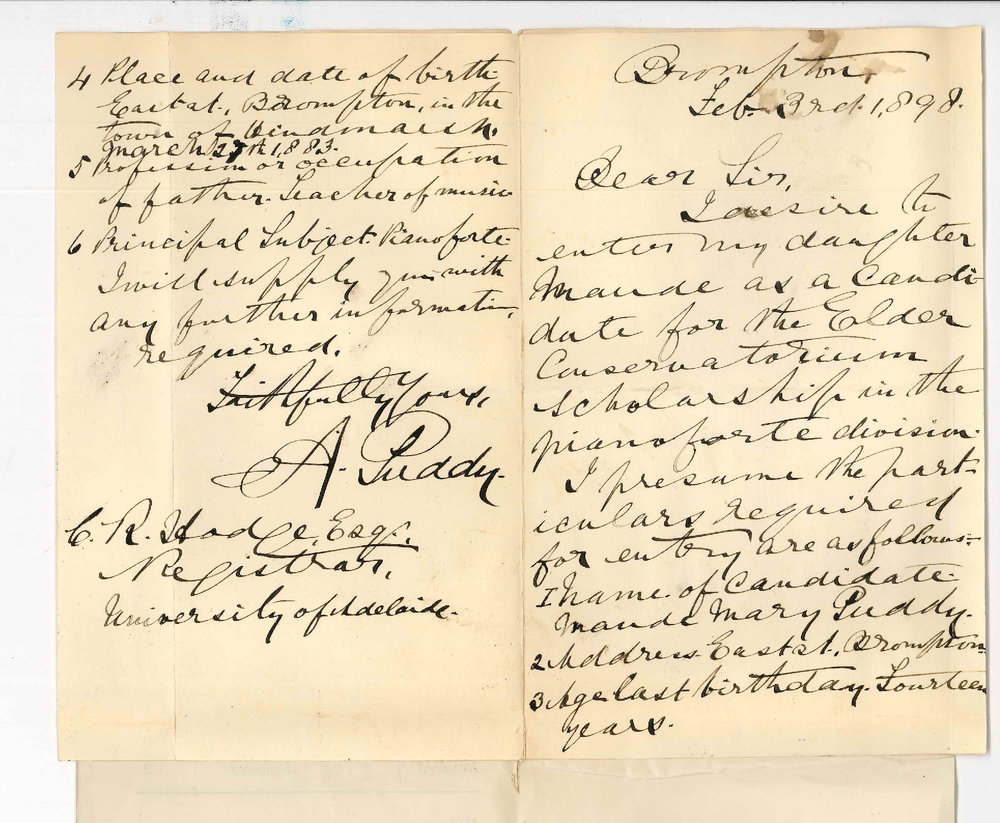 Brompton,
Feb. 3rd. 1,898.
Dear Sir,
I desire to
enter my daughter
Maude as a Candi-
date for the Elder
Conservatorium
Scholarship in the
pianoforte division.
I presume the part-
iculars required
for entry are as follows:-
1 Name of Candidate.
Maude Mary Puddy.
2 Address East st., Brompton.
3 Age last birthday. Fourteen
years.
4 Place and date of birth
East st., Brompton, in the
town of Hindmarsh.
March 1,883.
5 Profession or occupation
of father. Teacher of music
6 Principal Subject. Pianoforte.
I will supply you with
any further information,
required.
Faithfully Yours,
A. Puddy.
C. R. Hodge, Esq.,
Registrar,
University of Adelaide.